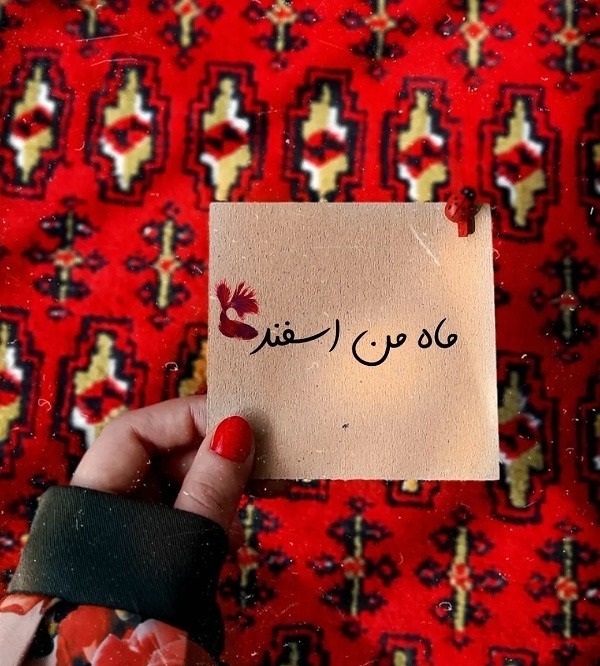 ماه من اسفند